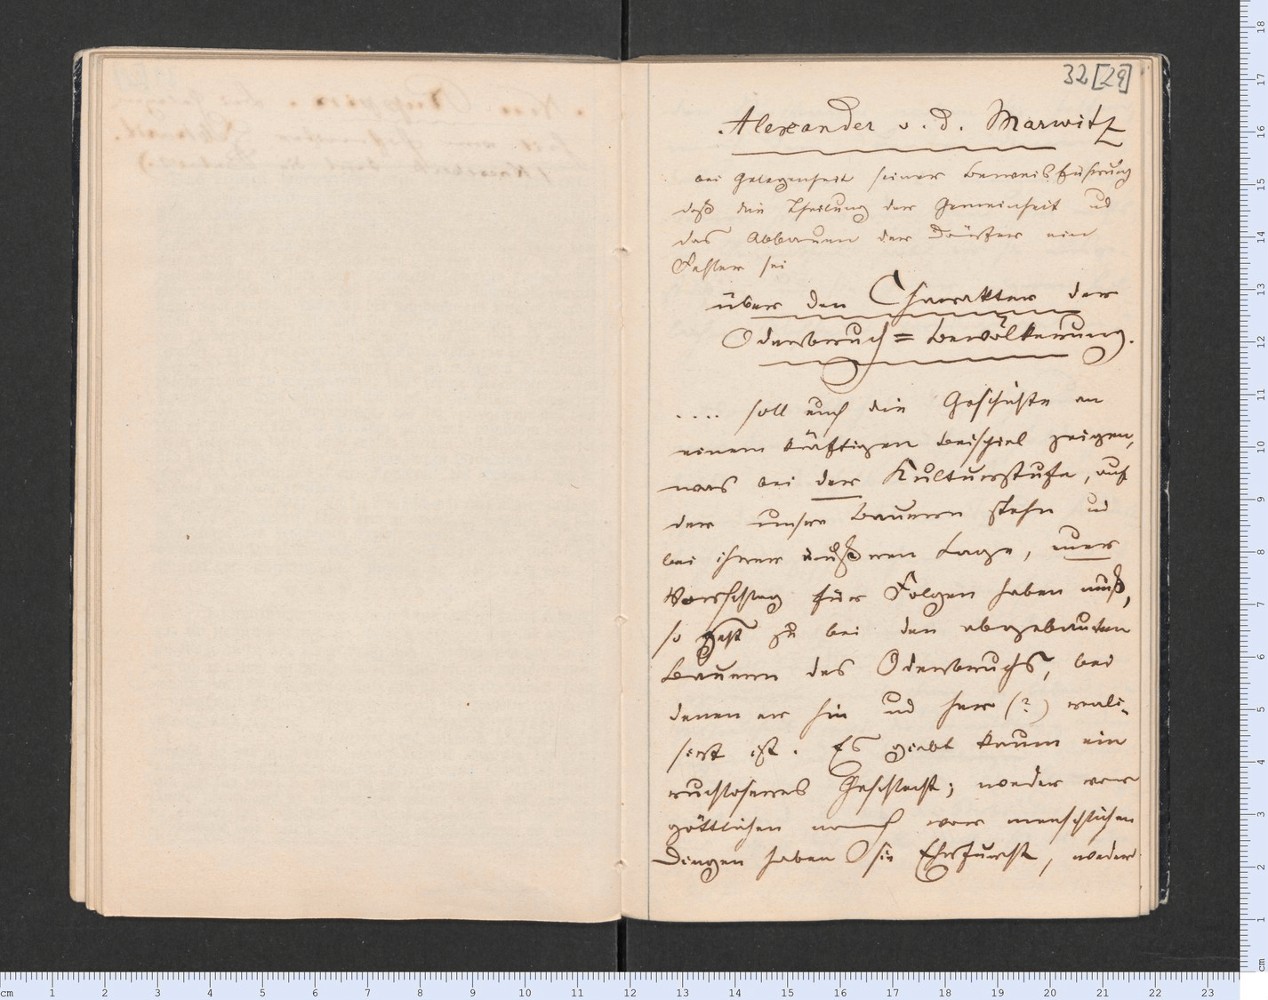 32[29]
Alexander v. d. Marwitz
bei Gelegenheit seiner Beweisführung
daß die Theilung der Gemeinheit ud
das Abbauen der Dörfer ein
Fehler sei
über den Charakter der
Oderbruch=Bevölkerung.
.... soll euch die Geschichte an
einem kräftigen Beispiel zeigen,
was bei der Kulturstufe, auf
der unsre Bauern stehn ud
bei ihrer äußeren Lage, Ihr
Vorschlag für Folgen haben muß,
so geht zu bei den abgebauten
Bauern des Oderbruchs, bei
denen er hin ud her (?) reali-
sirt ist. Es giebt kaum ein
ruchloseres Geschlecht; weder vor
göttlichen noch vor menschlichen
Dingen haben sie Ehrfurcht, weder